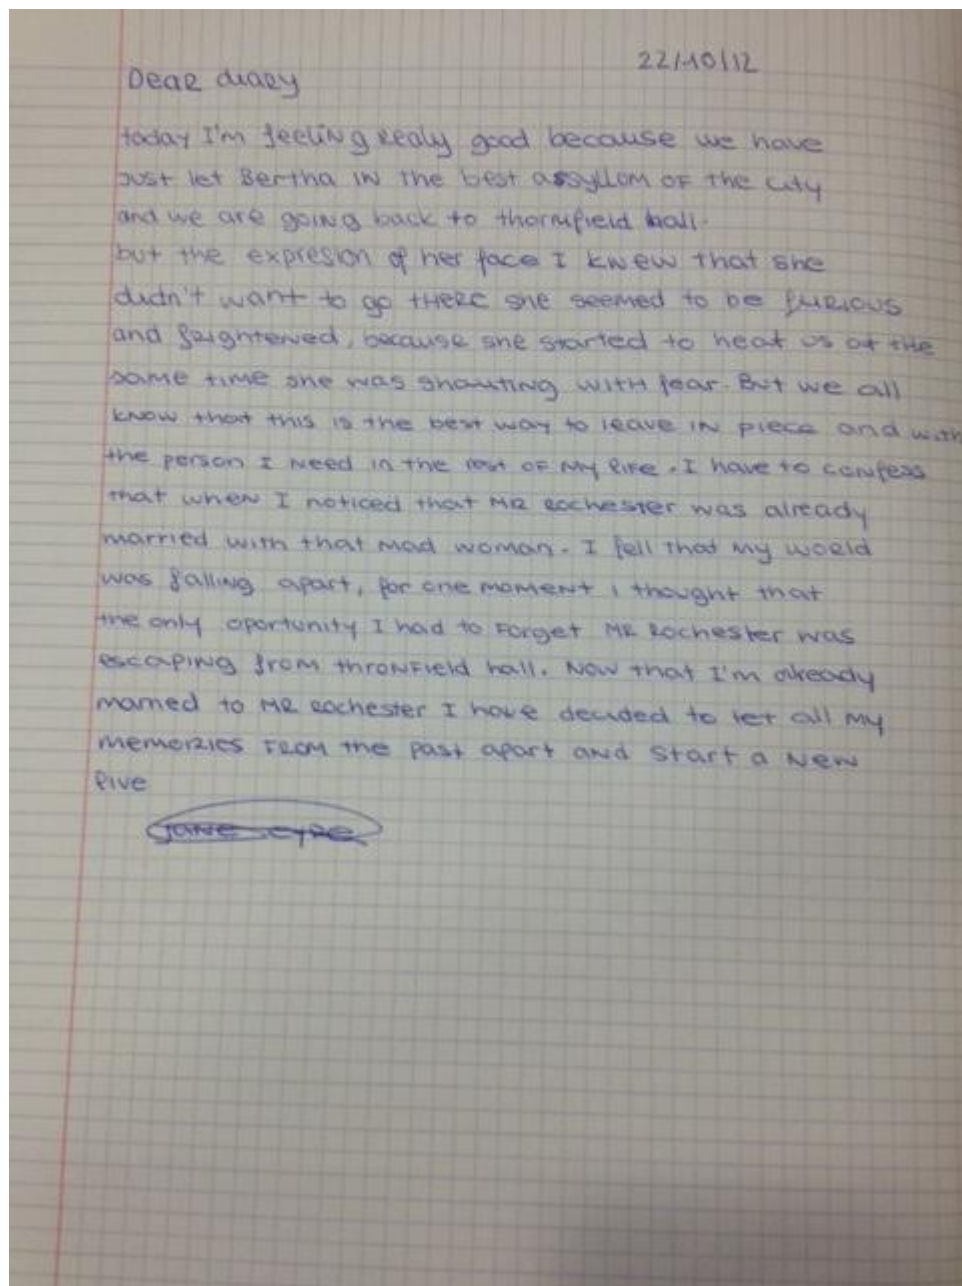 22/10/12
Dear diary
today I'm feeling realy good because we have
just let Bertha in the best assyllom of the city
and we are going back to thornfield hall.
but the expresion of her face I knew that she
didn't want to go there she seemed to be furious
and freightened, because she started to heat us at the
same time she was shouting with fear. But we all
know that this is the best way to leave in piece and with
the person I need in the rest of my life. I have to confess
that when I noticed that MR Rochester was already
married with that mad woman. I fell that my world
was falling apart, for one moment I thought that
the only oportunity I had to forget MR Rochester was
escaping from thronfield hall. Now that I'm already
married to MR Rochester I have decided to let all my
memories from the past apart and start a new
live
Jane eyre